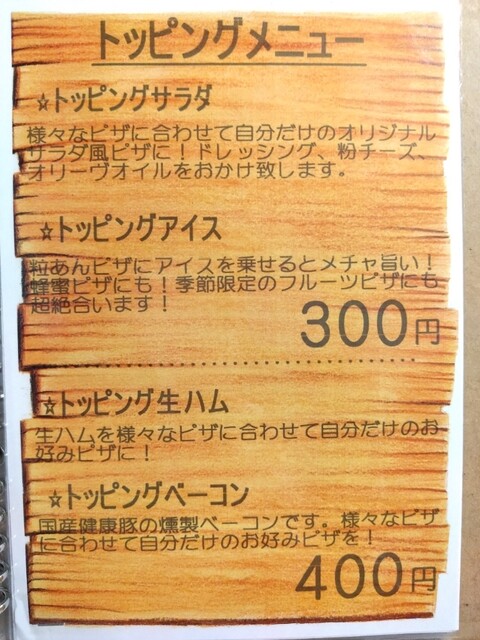 トッピングメニュー
☆トッピングサラダ
様々なピザに合わせて自分だけのオリジナル
サラダ風ピザに！ドレッシング、粉チーズ、
オリーヴオイルをおかけ致します。
☆トッピングアイス
粒あんピザにアイスを乗せるとメチャ旨い！
蜂蜜ピザにも！季節限定のフルーツピザにも
超絶合います！
300円
☆トッピング生ハム
生ハムを様々なピザに合わせて自分だけのお
好みピザに！
☆トッピングベーコン
国産健康豚の燻製ベーコンです。様々なピザ
に合わせて自分だけのお好みピザを！
400円